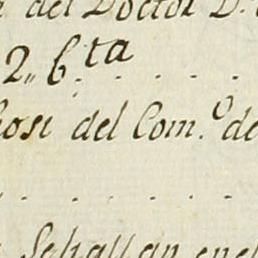 del Doctor D.
2,, 6.ta
del Com.o de
Sehallan en el